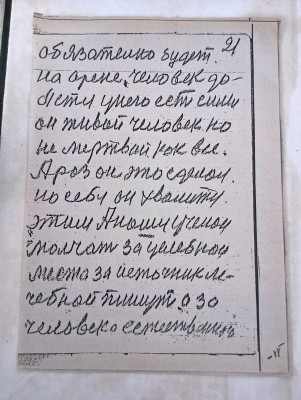 21
обязателно будет.
на арене, человек до-
бети унего ести сили
он живой человек но
не мертвой как все.
Араз он это сделол.
по себи он хвалиту
этим Анаши ученои
молчат за целебной
место за источник ле-
чебной пишут, а за
человека естественной
-15